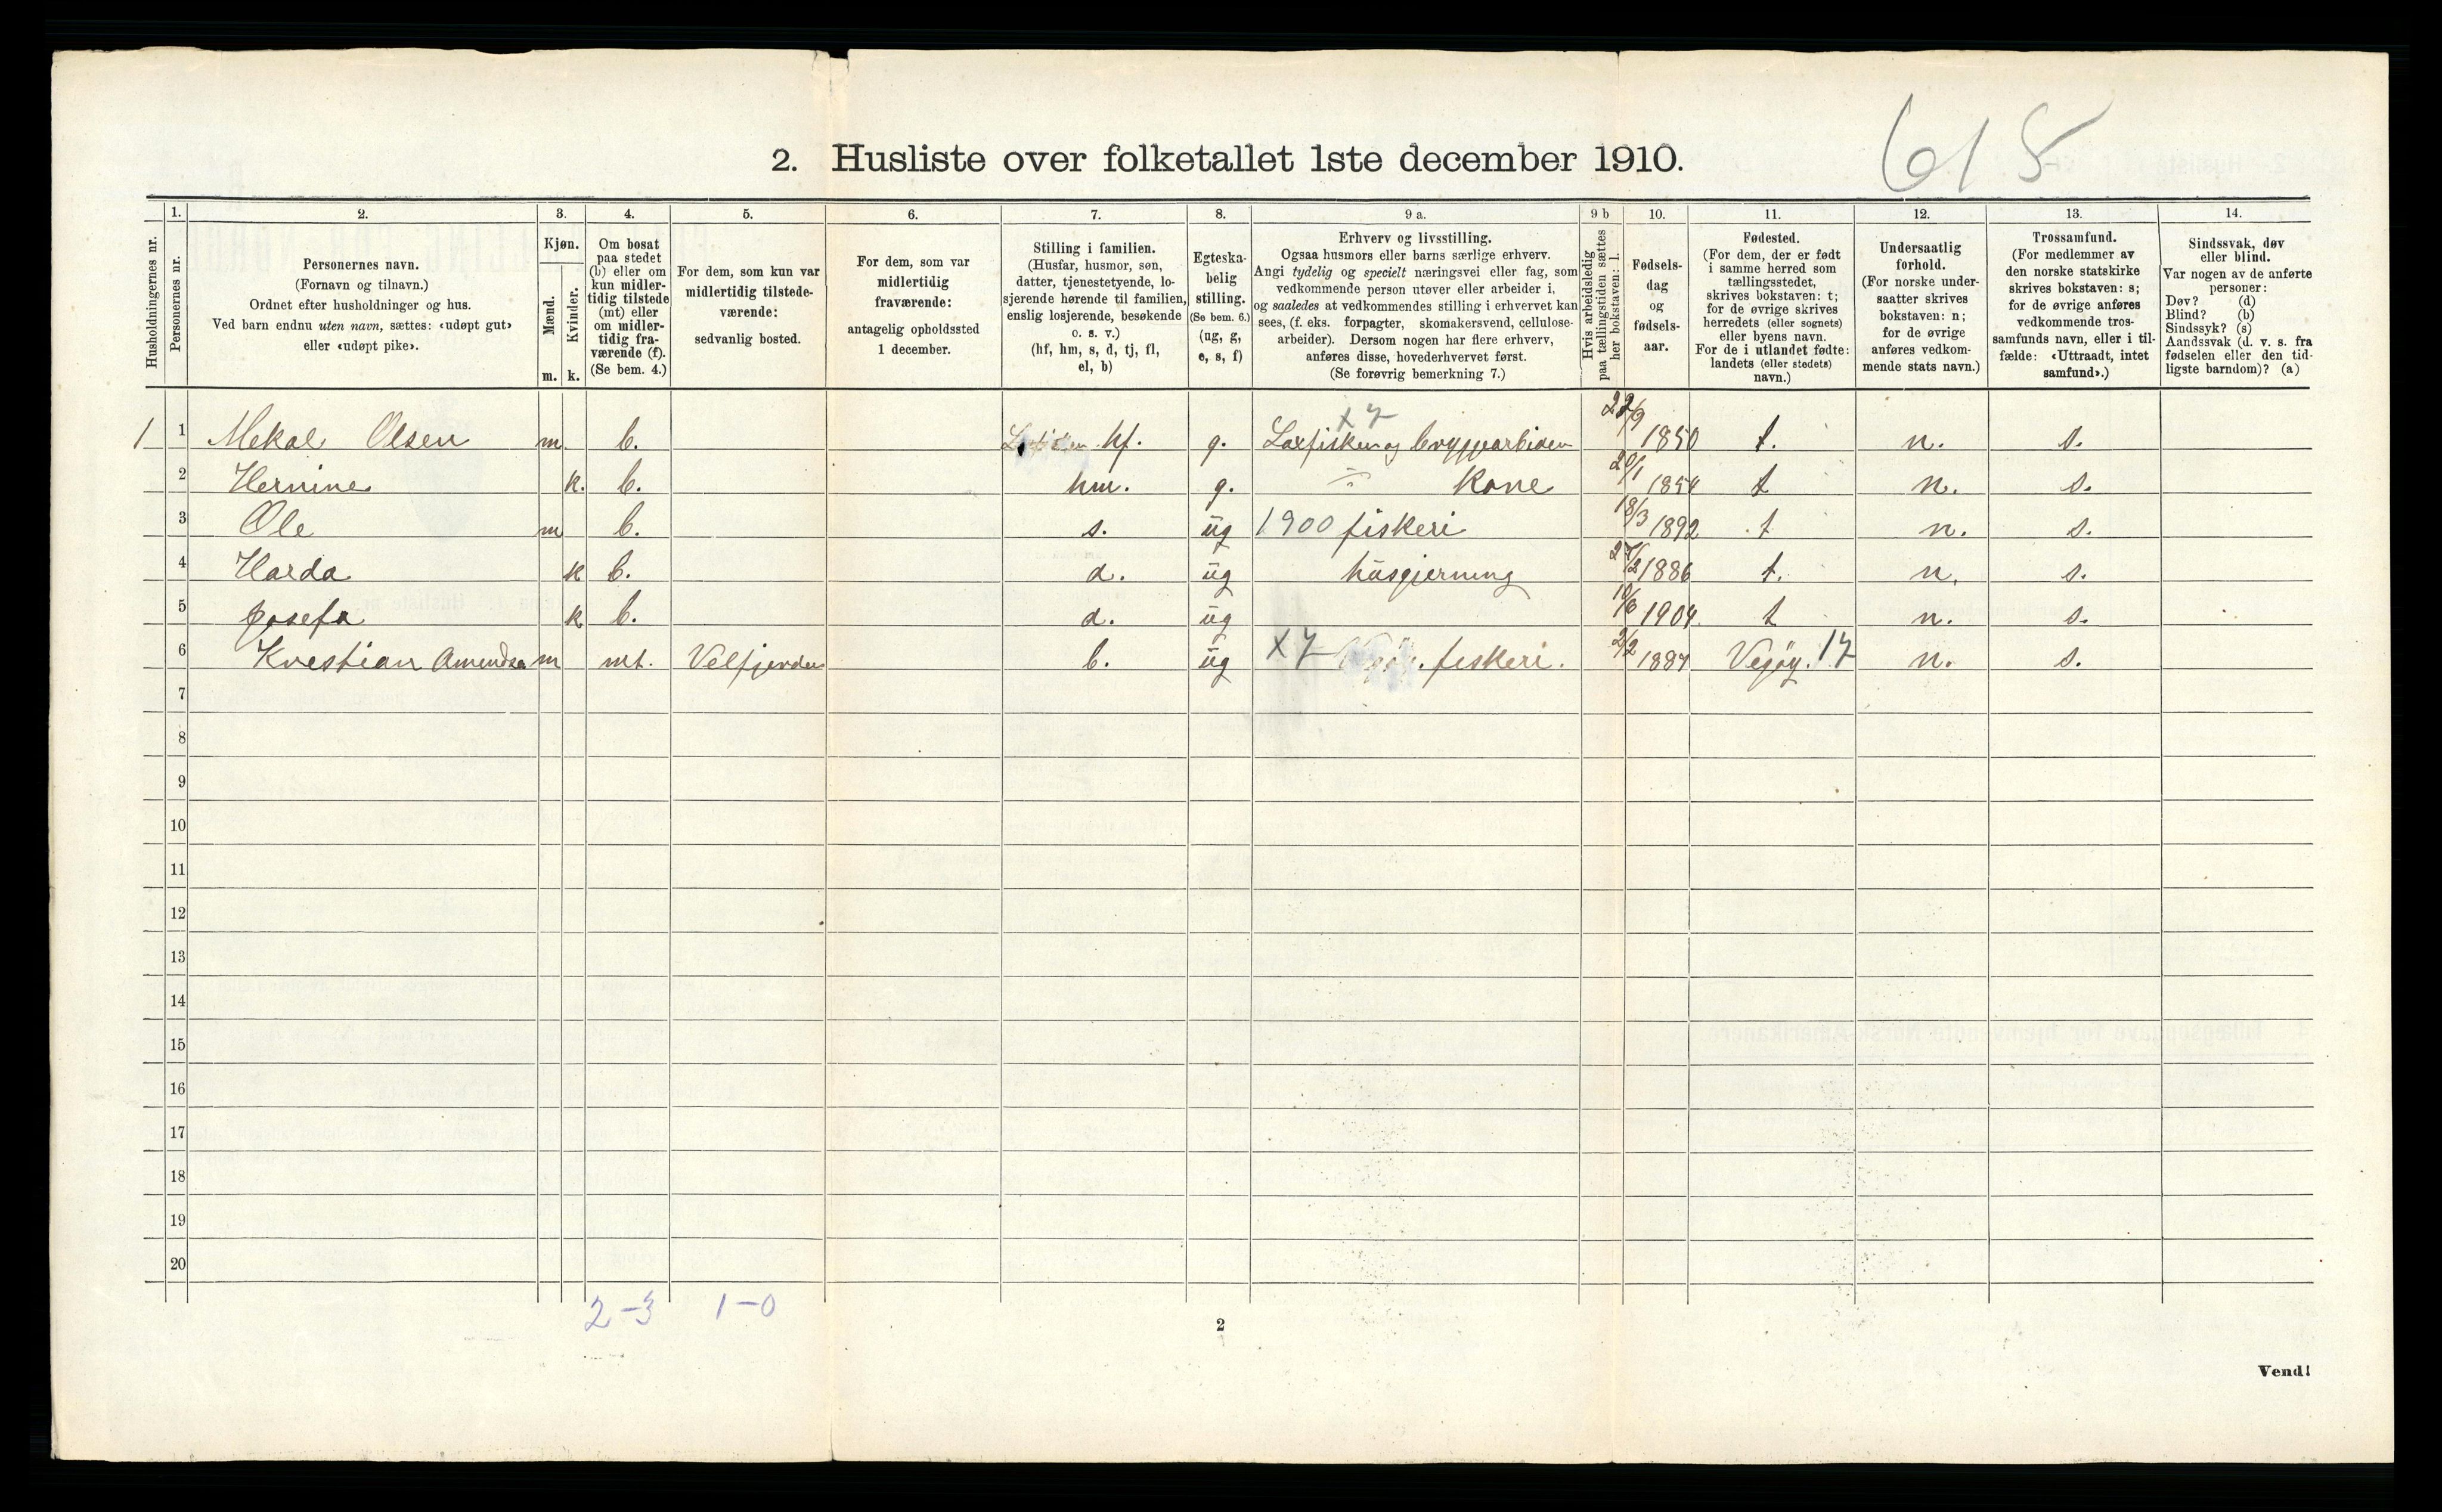 618
2. Husliste over folketallet 1ste december 1910.
Husholdningernes nr.
1.
Personernes nr.
2.
Personernes navn.
(Fornavn og tilnavn.)
Ordnet efter husholdninger og hus.
Ved barn endnu uten navn, sættes: «udøpt gut»
eller «udøpt pike».
3.
Kjøn.
Mænd.
Kvinder.
m. k.
4.
Om bosat
paa stedet
(b) eller om
kun midler-
tidig tilstede
(mt) eller
om midler-
tidig fra-
værende (f).
(Se bem. 4.)
5.
For dem, som kun var
midlertidig tilstede-
værende:
sedvanlig bosted.
6.
For dem, som var
midlertidig
fraværende:
antagelig opholdssted
1 december.
7.
Stilling i familien.
(Husfar, husmor, søn,
datter, tjenestetyende, lo-
sjerende hørende til familien,
enslig losjerende, besøkende
o. s. v.)
(hf, hm, s, d, tj, fl,
el, b)
8.
Egteska-
belig
stilling.
(Se bem. 6.)
(ug, g,
e, s, f)
9 a.
Erhverv og livsstilling.
Ogsaa husmors eller barns særlige erhverv.
Angi tydelig og specielt næringsvei eller fag, som
vedkommende person utøver eller arbeider i,
og saaledes at vedkommendes stilling i erhvervet kan
sees, (f. eks. forpagter, skomakersvend, cellulose-
arbeider). Dersom nogen har flere erhverv,
anføres disse, hovederhvervet først.
(Se forøvrig bemerkning 7.)
9 b
Hvis arbeidsledig
paa tællingstiden sættes
her bokstaven: l.
10.
Fødsels-
dag
og
fødsels-
aar.
11.
Fødested.
(For dem, der er født
i samme herred som
tællingsstedet,
skrives bokstaven: t;
for de øvrige skrives
herredets (eller sognets)
eller byens navn.
For de i utlandet fødte:
landets (eller stedets)
navn.)
12.
Undersaatlig
forhold.
(For norske under-
saatter skrives
bokstaven: n;
for de øvrige
anføres vedkom-
mende stats navn.)
13.
Trossamfund.
(For medlemmer av
den norske statskirke
skrives bokstaven: s;
for de øvrige anføres
vedkommende tros-
samfunds navn, eller i til-
fælde: «Uttraadt, intet
samfund».)
14.
Sindssvak, døv
eller blind.
Var nogen av de anførte
personer:
Døv? (d)
Blind? (b)
Sindssyk? (s)
Aandssvak (d. v. s. fra
fødselen eller den tid-
ligste barndom)? (a)
x 7
1 1 Mekal Olsen m b. hf. g. Laxfisker og bryggearbider 22/9 1850 t. n. s.
2 Hernine k. b. hm. g. Kone 20/1 1854 t n. s.
3 Ole m b. s. ug 1900 fiskeri 18/3 1892 t n. s.
4 Harda k b. d. ug husgjerning 27/2 1886 t. n. s.
5 Josefa k b. d. ug 1904 t n. s.
6 Krestian Amundsen m mt. Velfjorden b. ug x 7 fiskeri. 2/2 1887 Vegøy. 17 n. s.
7
8
9
10
11
12
13
14
15
16
17
18
19
20
2-3 1-0
2
Vend!